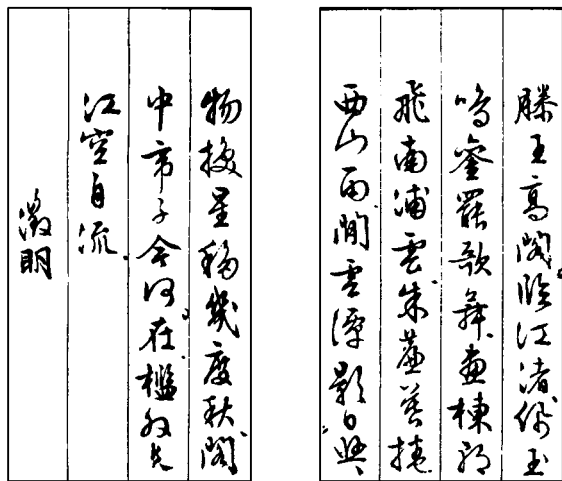 滕王高閣臨江渚佩玉
鳴鑾罷歌舞畫棟朝
飛南浦雲朱簾暮捲
西山雨閒雲潭影日悠〻
物換星移幾度秋閣
中帝子今何在檻外長
江空自流
徵明